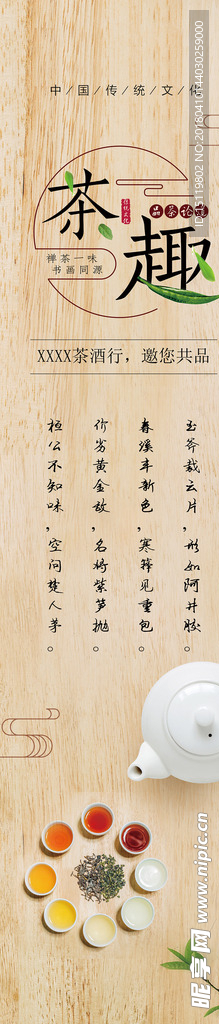 中/国/传/统/文/化
茶趣
传统文化
品茶论道
禅茶一味
书画同源
XXXX茶酒行，邀您共品
玉斧裁云片，形如阿井胶。
春溪年新色，寒箨见重包。
价劣黄金敌，名将紫笋抛。
桓公不知味，空问楚人茅。
昵享网 www.nipic.cn